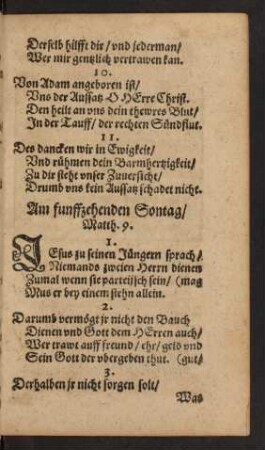 Derselb hilfft dir / vnd jederman /
Wer mir gentzlich vertrawen kan.
10.
Von Adam angeboren ist /
Vns der Aussatz O HErre Christ.
Den heilt an vns dein thewres Blut /
In der Tauff / der rechten Sündflut.
11.
Des dancken wir in Ewigkeit /
Vnd rühmen dein Barmhertzigkeit /
Zu dir steht vnser Zuuersicht /
Drumb vns kein Aussatz schadet nicht.
Am funffzehenden Sontag /
Matth. 9.
1.
JEsus zu seinen Jüngern sprach /
Niemands zweien Herrn dienen
Zumal wenn sie parteiisch sein / (mag
Mus er bey einem stehn allein.
2.
Darumb vermögt jr nicht den Bauch
Dienen vnd Gott dem HErren auch /
Wer trawt auff freund / ehr / geld vnd
Sein Gott der vbergeben thut. (gut /
3.
Derhalben jr nicht sorgen solt /
Was